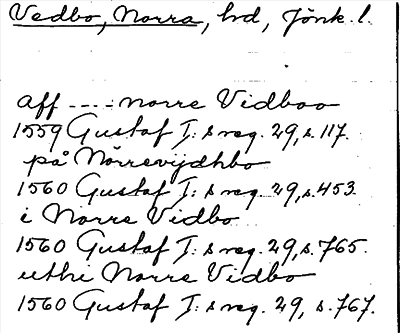 Vedbo, Norra, hd, Jönk. l.
aff ---- norre Vidboo
1559 Gustaf I: s reg. 29, s. 117.
på Nörrevijdhbo
1560 Gustaf I: s reg. 29, s. 453
i Norre Vidbo
1560 Gustaf I: s reg. 29, s. 765.
uthi Norre Vidbo
1560 Gustaf I: s reg. 29, s. 767.